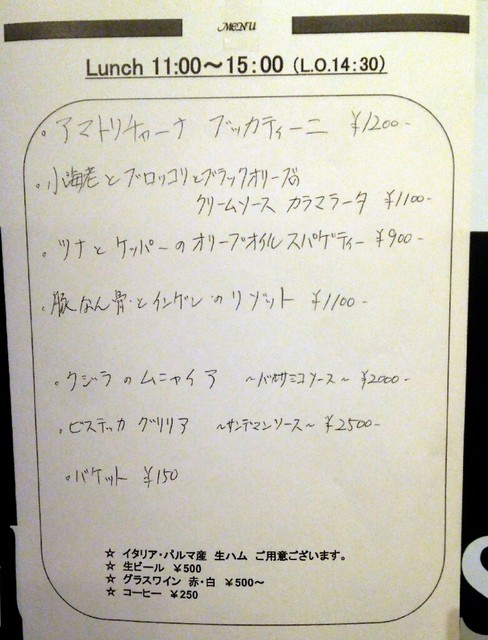 MENU
Lunch 11:00～15:00 (L.O.14:30)
・アマトリチャーナ ブッカティーニ ¥1200-
・小海老とブロッコリとブラックオリーブの
クリームソース カラマラータ ¥1100-
・ツナとケッパーのオリーブオイルスパゲティー ¥900-
・豚なん骨とインゲンのリゾット ¥1100-
・クジラのムニャイア ～バルサミコソース～ ¥2000-
・ビステッカ グリリア ～サンデマンソース～ ¥2500-
・バケット ¥150
☆ イタリア・パルマ産 生ハム ご用意ございます。
☆ 生ビール ￥500
☆ グラスワイン 赤・白 ￥500～
☆ コーヒー ￥250